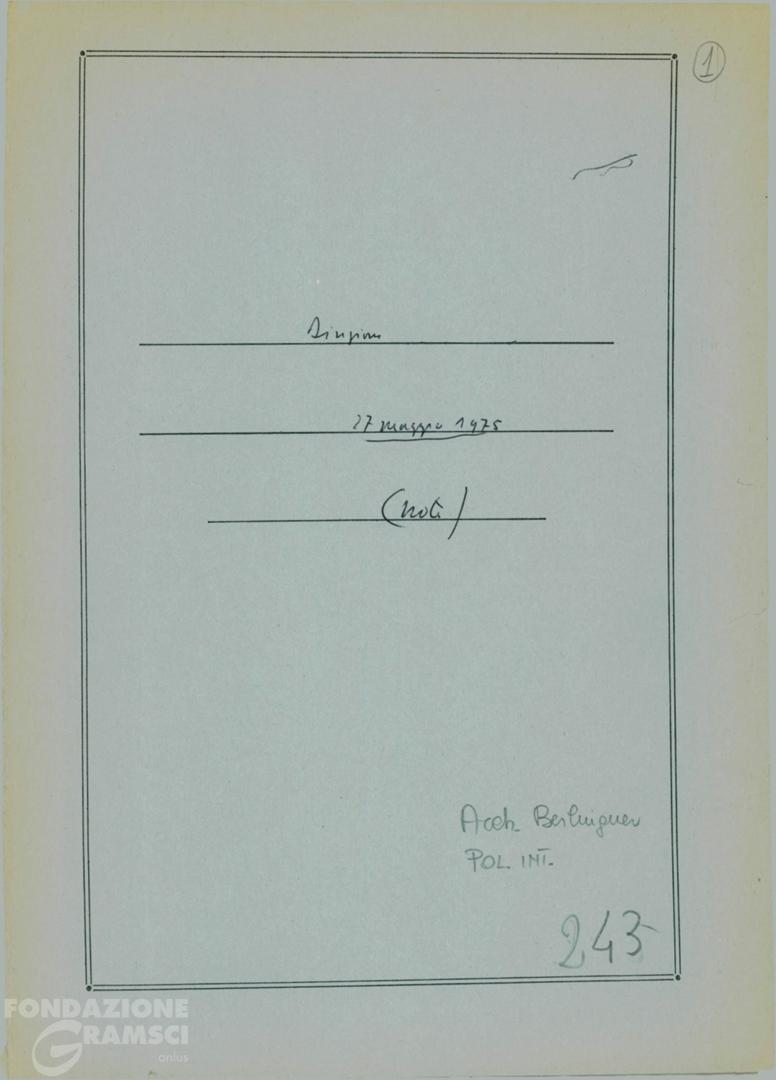 1
Direzione
27 maggio 1975
(note)
Arch. Berlinguer
POL. INT.
243
FONDAZIONE
GRAMSCI
onlus